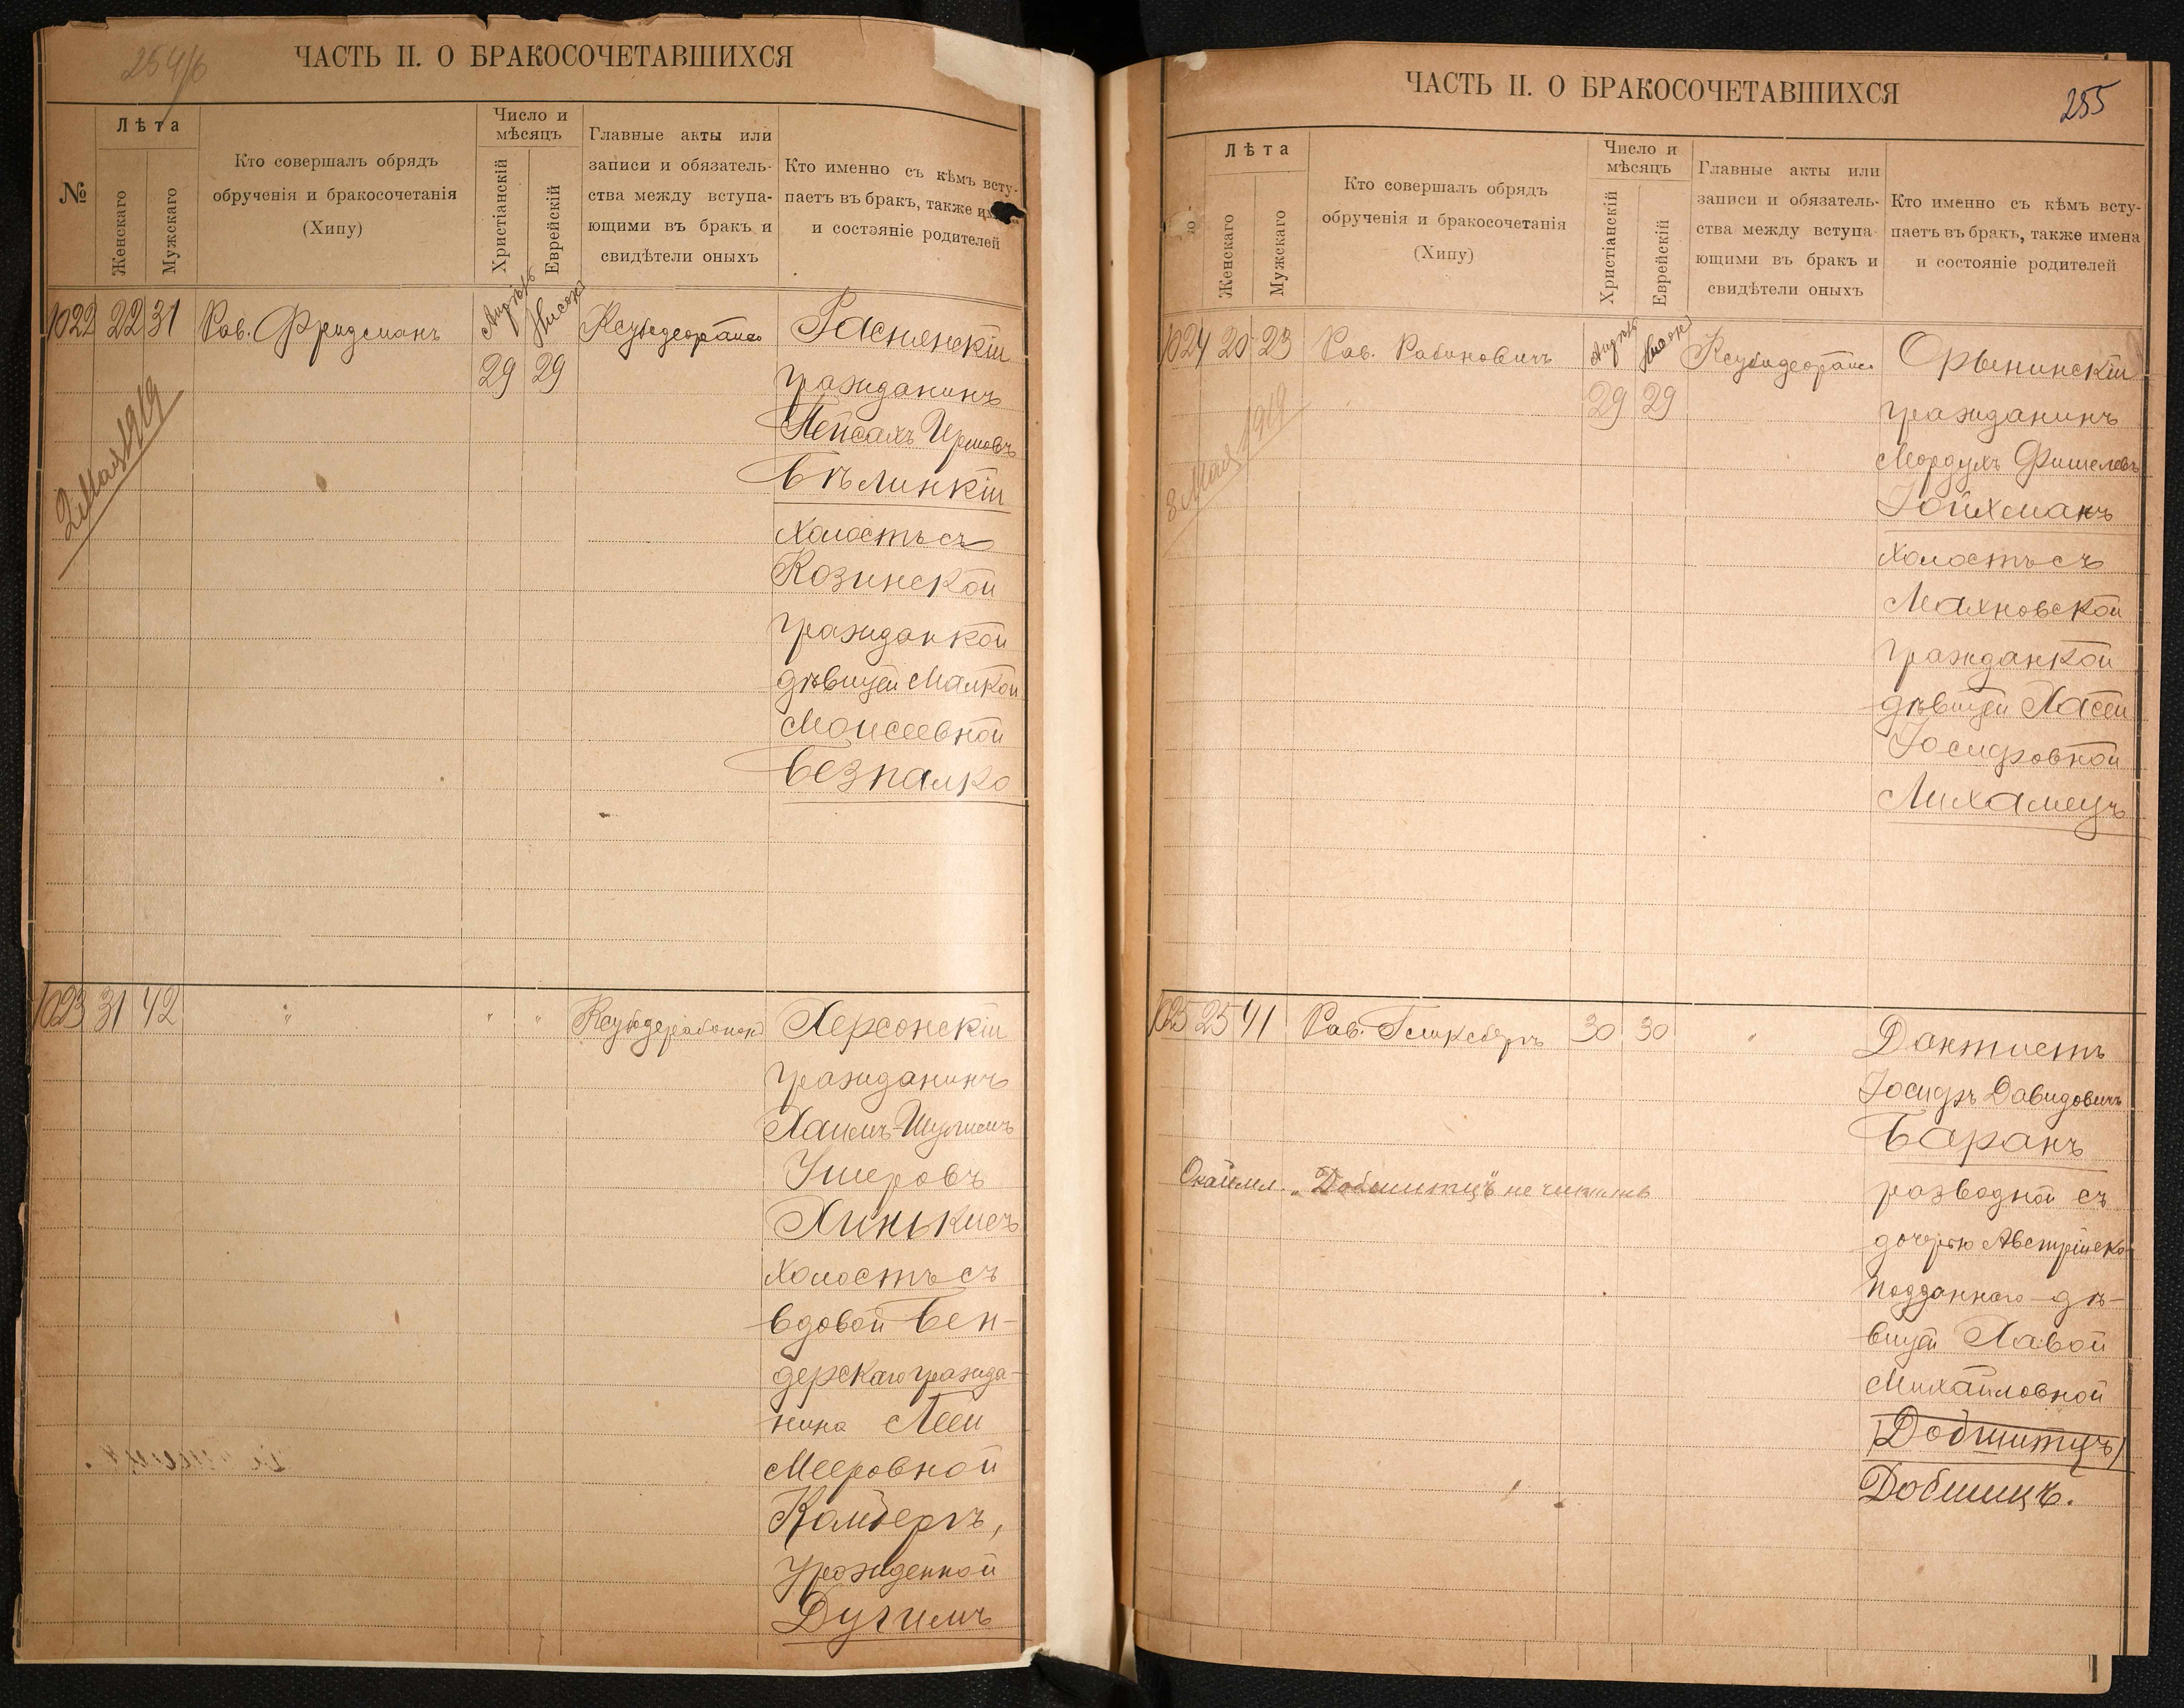 254/б
ЧАСТЬ II. О БРАКОСОЧЕТАВШИХСЯ
№
Лѣта
Женскаго
Мужскаго
Кто совершалъ обрядъ
обрученія и бракосочетанія
(Хипу)
Число и
мѣсяцъ
Христіанскій
Еврейскій
Главные акты или
записи и обязатель-
ства между вступа-
ющими въ бракъ и
свидѣтели оныхъ
Кто именно съ кѣмъ всту-
паетъ въ бракъ, также
и состояніе родителей
1022 22 31 Рав. Фридманъ
Апрѣль Нисонъ
29 29
2 Мая 1919
гражданинъ
Пейсахъ
Бѣлинкій
холостъ съ
Козинской
гражданкой
дѣвицей Малкой
Моисеевной
Безпалко
1023 31 42 " " "
Херсонскій
гражданинъ
Хаимъ-Шулимъ
Ушеровъ
Хинькисъ
холостъ съ
вдовой Бен-
дерскаго гражда-
нина Леей
Мееровной
Камбергъ,
урожденной
Дугимъ
ЧАСТЬ II. О БРАКОСОЧЕТАВШИХСЯ
255
Лѣта
Женскаго
Мужскаго
Кто совершалъ обрядъ
обрученія и бракосочетанія
(Хипу)
Число и
мѣсяцъ
Христіанскій
Еврейскій
Главные акты или
записи и обязатель-
ства между вступа
ющими въ бракъ и
свидѣтели оныхъ
Кто именно съ кѣмъ всту-
паетъ въ бракъ, также имена
и состояніе родителей
1024 20 23 Рав. Рабиновичъ
Апрѣль Нисонъ
29 29
3 Мая 1919
Орынинскій
гражданинъ
Мордухъ Фишелевъ
Гойхманъ
холостъ съ
Махновской
гражданкой
дѣвицей Хасей
Іосифовной
Михамецъ
1025 25 41 Рав. Гликсбергъ 30 30 "
Дантистъ
Іосифъ Давидовичъ
Баранъ
разводной съ
дочерью Австрійско
подданнаго дѣ-
вицей Хавой
Михайловной
(Добшитцъ)
Добшицъ.
"Добшитцъ" не читать